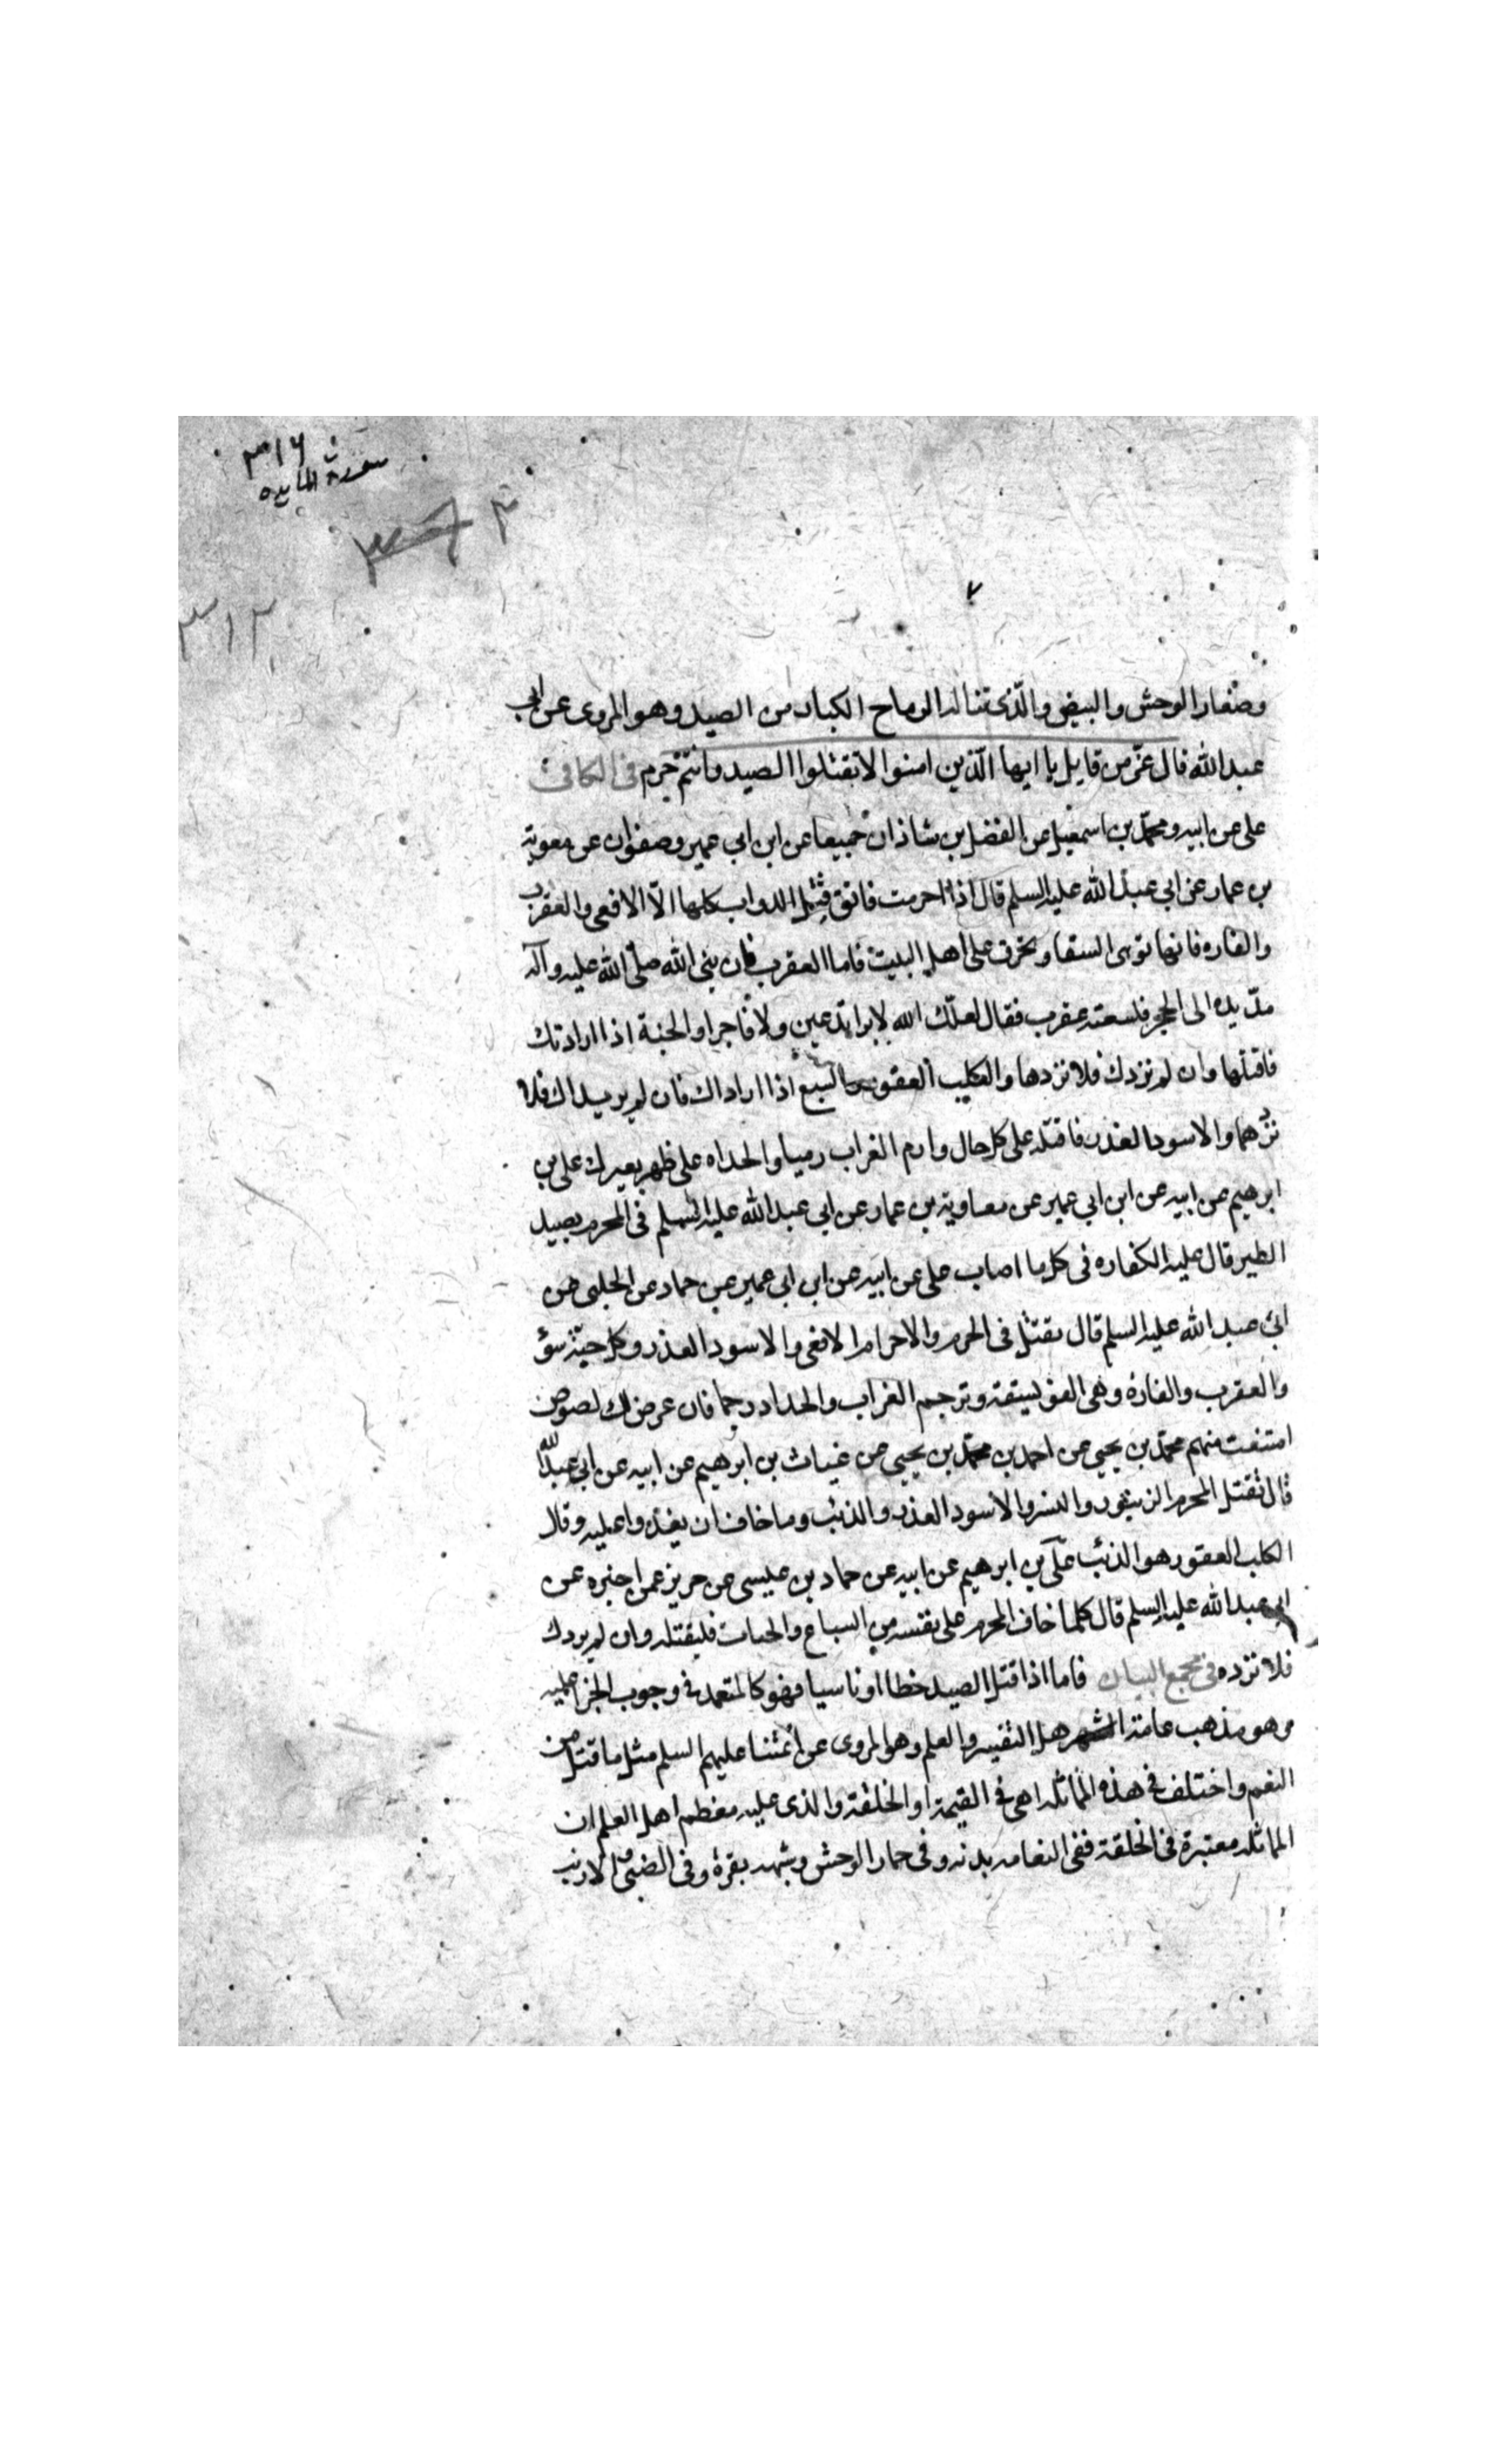 ٣١٦
سورة المايده
٣
٣١٢
وصغار الوحش والبيض والذي تناله الرماح الكبار من الصيد وهو المروى عن ابى
عبد الله قال عزّ من قايل يا ايها الّذين امنوا لا تقتلوا الصيد وانتم حرم فى الكافى
على عن ابيه ومحمّد بن اسمعيل عن الفضل بن شاذان جميعا عن ابن ابى عمير وصفوان عن معوية
بن عمار عن ابى عبد الله عليه السلم قال اذا احرمت فاتق قتل الدواب كلها الّا الافعى والعقرب
والفاره فانها توهى السقا وتخرق على اهل البيت فاما العقرب فان نبى الله صلّى الله عليه وآله
مدّ يده الى الحجر فلسعته عقرب فقال لعنك الله لا برا تدعين ولا فاجرا والحية اذا ارادتك
فاقتلها وان لم تردك فلا تردها والكلب العقور والسبع اذا ارادك فان لم يريداك فلا
تردهما والاسود الغدر فاقتله على كل حال وارم الغراب رميا والحداه على ظهر بعيرك على بن
ابرهيم عن ابيه عن ابن ابى عمير عن معاوية بن عمار عن ابى عبد الله عليه السلم فى المحرم يصيد
الطير قال عليه الكفاره فى كل ما اصاب على عن ابيه عن ابن ابى عمير عن حماد عن الحلبى عن
ابى عبد الله عليه السلم قال يقتل فى الحرم والاحرام الافعى والاسود الغدر وكل حيّة سوؤ
والعقرب والفارة وهى الفويسقة وترجم الغراب والحداد رجما فان عرض لك لصوص
امتنعت منهم محمّد بن يحيى عن احمد بن محمّد بن يحيى عن غياث بن ابرهيم عن ابيه عن ابى عبد الله
قال تقتل المحرم الزنبور والنسر والاسود الغدر والذئب وما خاف ان يعدوا عليه وقال
الكلب العقور هو الذئب علىّ بن ابرهيم عن ابيه عن حماد بن عليسى عن حريز عمن اخبره عن
ابى عبد الله عليه السلم قال كلما خاف المحرم على نفسه من السباع والحيات فليقتله وان لم يردك
فلا ترده فى مجمع البيان فاما اذا قتل الصيد خطا او ناسيا فهو كالمتعمد فى وجوب الجزا عليه
وهو مذهب عامة اهل التفسير والعلم وهو المروى عن ائمتنا عليهم السلم مثل ما قتل من
النعم واختلف فى هذه المماثله اهى فى القيمة او الخلقة والذى عليه معظم اهل العلم ان
المماثله معتبرة فى الخلقة ففى النعامه بدنه وفى حمار الوحش وشبهه بقرة وفى الضبى والارنب